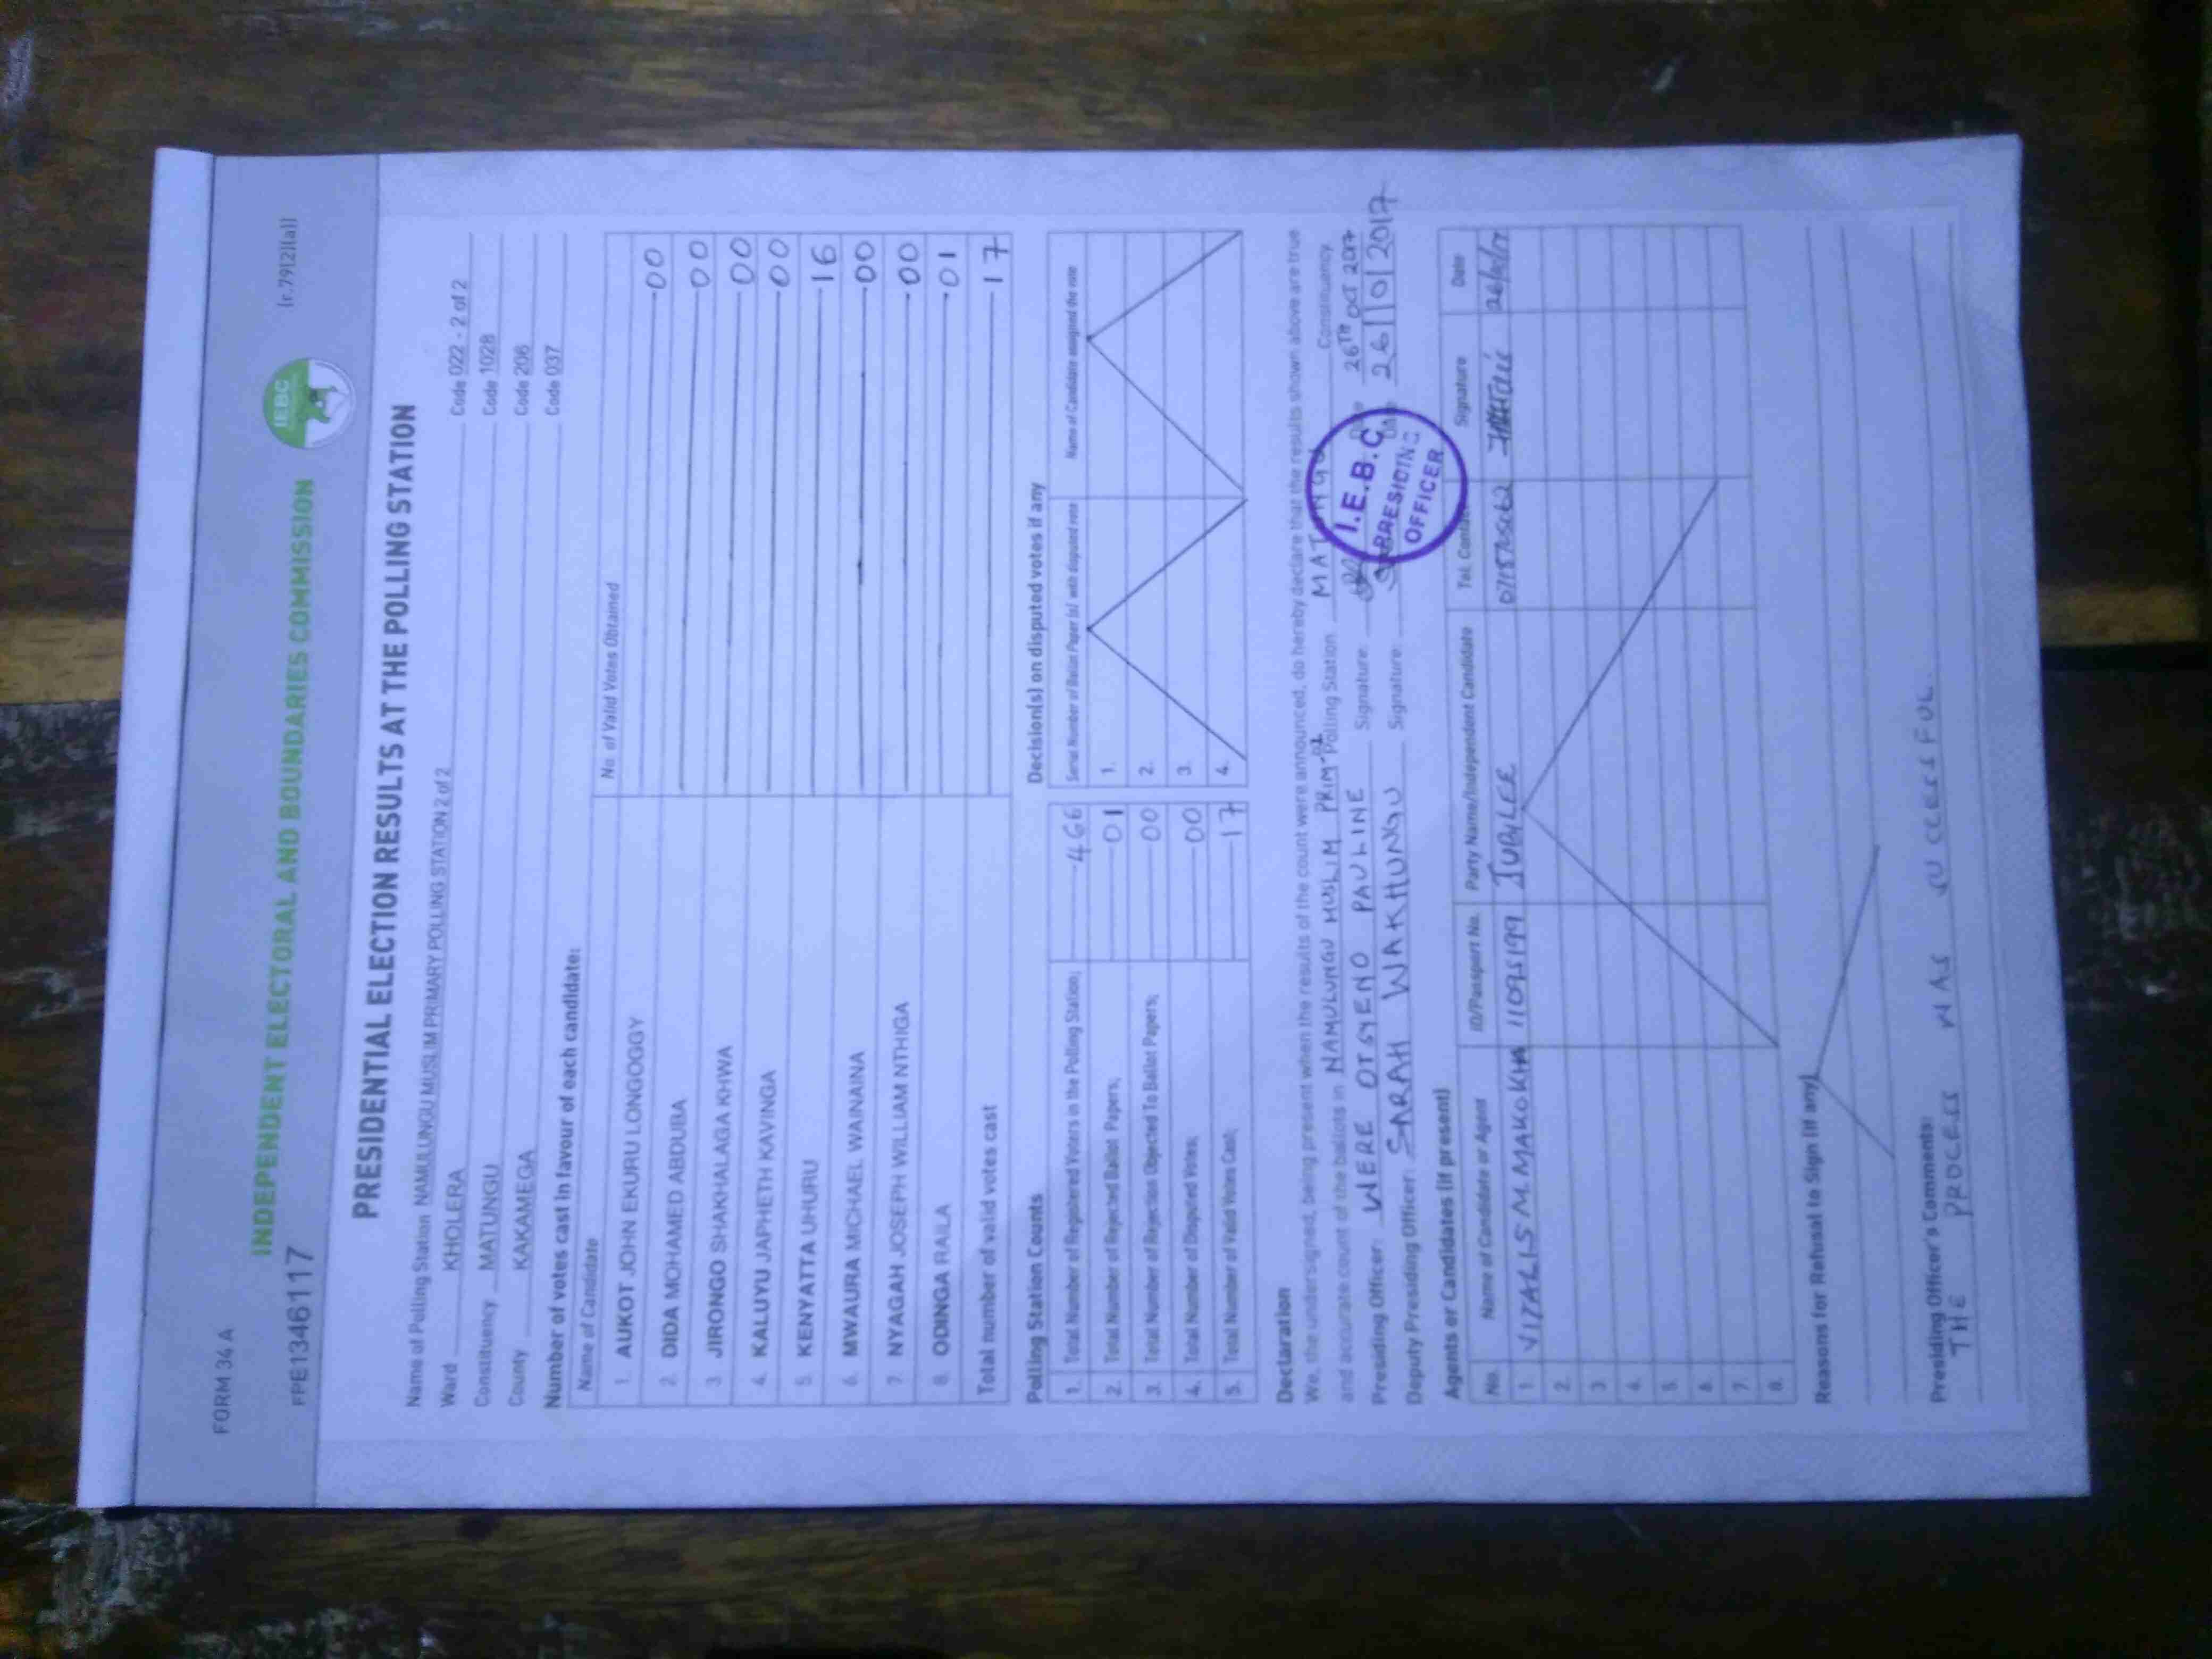 FORM 34 A
(r.79(2)(a))
INDEPENDENT ELECTORAL AND BOUNDARIES COMMISSION
IEBC
FPE1346117
PRESIDENTIAL ELECTION RESULTS AT THE POLLING STATION
Name of Polling Station NAMULUNGU MUSLIM PRIMARY POLLING STATION 2 of 2 Code 022 - 2 of 2
Ward KHOLERA Code 1028
Constituency MATUNGU Code 206
County KAKAMEGA Code 037
Number of votes cast in favour of each candidate:
Name of Candidate No. of Valid Votes Obtained
1. AUKOT JOHN EKURU LONGOGGY 00
2. DIDA MOHAMED ABDUBA 00
3. JIRONGO SHAKHALAGA KHWA 00
4. KALUYU JAPHETH KAVINGA 00
5. KENYATTA UHURU 16
6. MWAURA MICHAEL WAINAINA 00
7. NYAGAH JOSEPH WILLIAM NTHIGA 00
8. ODINGA RAILA 01
Total number of valid votes cast 17
Polling Station Counts
1. Total Number of Registered Voters in the Polling Station; 466
2. Total Number of Rejected Ballot Papers; 01
3. Total Number of Rejection Objected To Ballot Papers; 00
4. Total Number of Disputed Votes; 00
5. Total Number of Valid Votes Cast; 17
Decision(s) on disputed votes if any
Serial Number of Ballot Paper (s) with disputed vote Name of Candidate assigned the vote
1.
2.
3.
4.
Declaration
We, the undersigned, being present when the results of the count were announced, do hereby declare that the results shown above are true
and accurate count of the ballots in NAMULUNGU MUSLIM PRIM Polling Station Constituency
Presiding Officer: WERE OTSYENO PAULINE Signature Date 26TH OCT 2017
Deputy Presiding Officer: SARAH WAKHUNGU Signature: Date 26/10/2017
I.E.B.C
PRESIDING
OFFICER
Agents or Candidates (if present)
No. Name of Candidate or Agent ID/Passport No. Party Name/Independent Candidate Tel. Contact Signature Date
1. VITALIS M. MAKOKHA 11095199 JUBILEE 26/10/17
2.
3.
4.
5.
6.
7.
8.
Reasons for Refusal to Sign (if any)
Presiding Officer's Comments:
THE PROCESS WAS SUCCESSFUL.